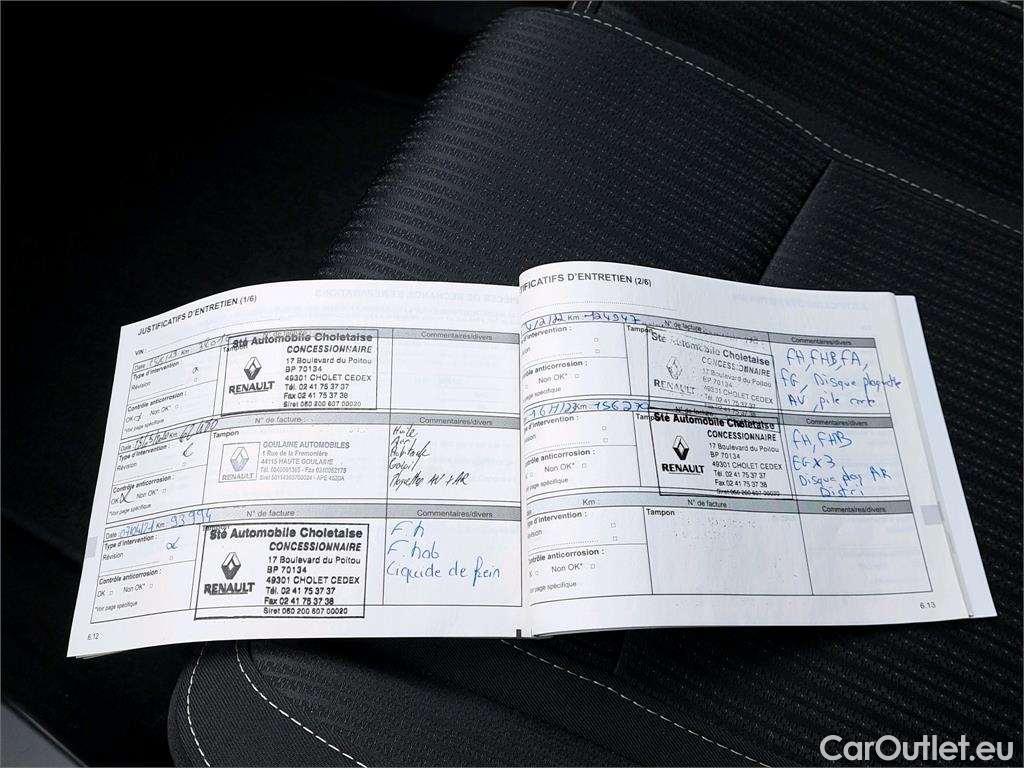 JUSTIFICATIFS D'ENTRETIEN (1/6)
VIN :
Date : Km
Type d'intervention :
Révision
Contrôle anticorrosion :
OK Non OK*
*Voir page spécifique
Sté Automobile Choletaise
CONCESSIONNAIRE
17 Boulevard du Poitou
BP 70134
49301 CHOLET CEDEX
Tél. 02 41 75 37 37
Fax 02 41 75 37 38
Siret 050 200 607 00020
RENAULT
Commentaires/divers
Date : Km
Type d'intervention :
Révision
Contrôle anticorrosion :
OK Non OK*
*Voir page spécifique
N° de facture
Tampon
GOULAINE AUTOMOBILES
1 Rue de la Fremonière
44115 HAUTE GOULAINE
Commentaires/divers
Huile
Plaquettes AV + AR
Date : Km 93994
Type d'intervention :
Révision
Contrôle anticorrosion :
OK Non OK*
*Voir page spécifique
N° de facture
Sté Automobile Choletaise
CONCESSIONNAIRE
17 Boulevard du Poitou
BP 70134
49301 CHOLET CEDEX
Tél. 02 41 75 37 37
Fax 02 41 75 37 38
Siret 050 200 607 00020
RENAULT
Commentaires/divers
F. h
F. hab
Liquide de frein
6.12
TIFICATIFS D'ENTRETIEN (2/6)
/2/22 Km 124947
d'intervention :
Non OK*
page spécifique
Tampon
N° de facture
Sté Automobile Choletaise
CONCESSIONNAIRE
17 Boulevard du Poitou
BP 70134
49301 CHOLET CEDEX
Tél. 02 41 75 37 37
RENAULT
Commentaires/divers
FH, FHB FA,
FG, Disque plaquette
AV, pile carte
d'intervention :
ntrôle anticorrosion :
Non OK*
page spécifique
Sté Automobile Choletaise
CONCESSIONNAIRE
17 Boulevard du Poitou
BP 70134
49301 CHOLET CEDEX
Tél. 02 41 75 37 37
Fax 02 41 75 37 38
Siret 050 200 607 00020
RENAULT
FH, FHB
EGX3
Disque plaq AR
Distri
Km :
d'intervention :
ntrôle anticorrosion :
Non OK*
page spécifique
N° de facture
Tampon
Commentaires/divers
6.13
CarOutlet.eu